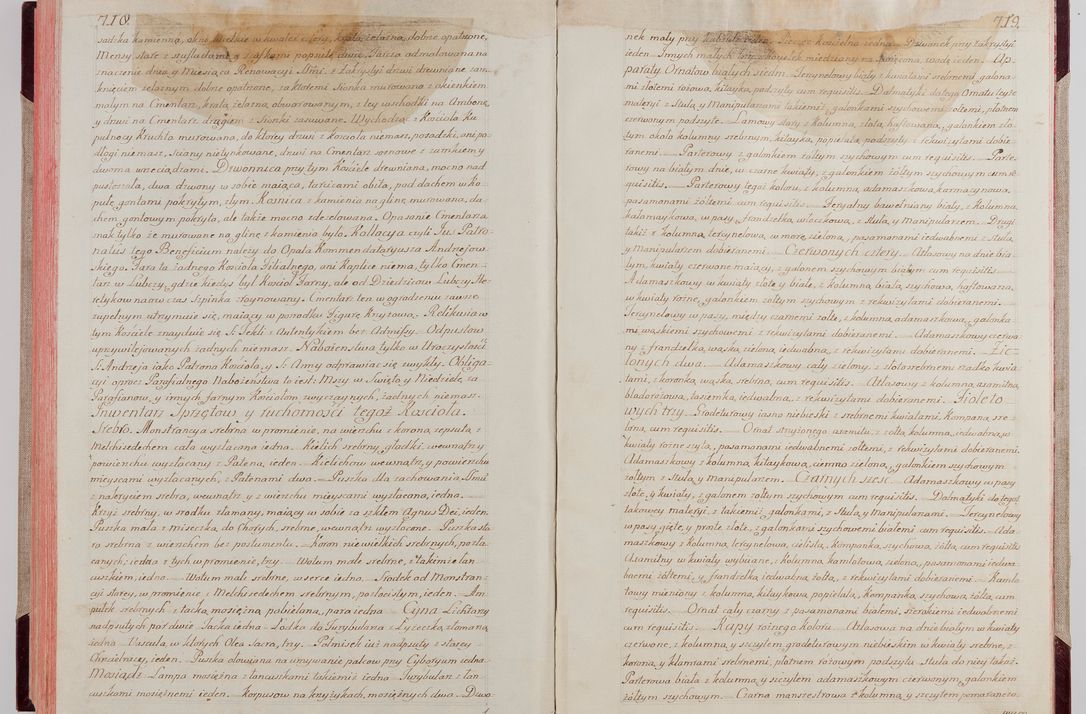 718.
sadzka kamienna, okno wielkie w kwater cztery, kratą żelazną, dobrze opatrzone,
Mensy stare z szufladami, y szafkami popsute dwie. Tarcza odmalowana na
znaczenie dnia, y Miesiąca Renowacyi Ssmi. z Zakrystyi drzwi drewniane zam-
knięciem żelaznym, dobrze opatrzone, za któremi sionka murowana z okienkiem
małym na Cmentarz, kratą żelazną, obwarowanym, z tey wschodki na Ambonę,
y drzwi na Cmentarz drągiem z sionki zasuwane. Wychodząc z Kościoła Ku
pułnocy Kruchta murowana, do ktorey drzwi z kościoła niemasz, posadzki, ani po-
dłogi niemasz, ściany nietynkowane, drzwi na Cmentarz sosnowe z zamkiem y
dwoma wrzeciądzami. Dzwonnica przy tym Kościele drewniana, mocno nad-
pustoszała, dwa dzwony w sobie maiąca, tarcicami obita, pod dachem w ko-
pułę, gontami pokrytym, złym. Kosnica z kamienia na glinę murowana, da-
chem gontowym pokryta, ale także mocno zdezelowana. Opasanie Cmentarza
znak tylko że murowane na glinę z kamienia było. Kollacya czyli Jus Patro-
natûs tego Beneficium należy do Opata Kommendataryusza Andrzejow-
skiego. Fara ta żadnego Kościoła Filialnego, ani Kaplice niema, tylko Cmen-
tarz w Lubczy, gdzie kiedyś był Kościoł Farny, ale od Dziedzicow Lubczy He-
retykow na ow czas Szpinka zruynowany. Cmentarz ten w ogrodzeniu zawsze
zupełnym utrzymuie się, maiący w posrodku figurę Krzyżową. Relikwia w
tym Kościele znayduie się S: Tekli z Autentykiem bez Admissy. Odpustow
uprzywilejowanych żadnych niemasz. Nabożenstwa tylko w Uroczystość
S: Andrzeja iako Patrona Kościoła, y S: Anny odprawiać się zwykły. Obliga-
cyi oprocz Parafialnego Nabożeństwa to iest: Mszy w Święto y Niedziele, za
Parafianow, y innych farnym Kościołom zwyczaynych, żadnych niemasz.
Inwentarz Sprzętow y ruchomości tegoż Kościoła.
Srebro. Monstrancya srebrna w promienie, na wierzchu z koroną zepsutą z
Melchisedechem cała wyzłacana iedna. Kielich srebrny, gładki, wewnątrz y
powierzchu wyzłacany z Pateną, ieden. Kielichow wewnątrz, y powierzchu
mieyscami wyzłacanych, z Patenami dwa. Puszka dla zachowania Ssmi
z nakryciem srebrna, wewnątrz y z wierzchu mieyscami wyzłacana, iedna.
Krzyż srebrny, w srodku złamany, maiący w sobie za szkłem Agnus Dei, ieden.
Puszka mała z miseczką do Chorych, srebrne, wewnątrz wyzłocone. Puszka sta-
ra srebrna z wierzchem bez postumentu. Koron niewielkich srebrnych, pozła-
canych, iedna z tych w promienie, trzy. Wotum małe srebrne, z takimże łan-
cuszkiem, iedno. Wotum małe srebrne, w serce iedno. Srodek od Monstran-
cyi starey, w promienie z Melchisedechem srebrnym, pozłocistym, ieden. Am-
pułek srebrnych z tacką, mosiężną pobielaną, para iedna. Cyna Lichtarzy
nadpsutych par dwie. Tacka iedna. Łodka do Turybularza z Łyżeczką złamaną,
iedna. Vascula w których Olea sacra, trzy. Pułmisek iuż nadpsuty z starey
Chrzcielnicy, ieden. Puszka ołowiana na umywanie palcow przy Cyboryum iedna.
Mosiądz. Lampa mosiężna z łancuszkami takiemiż iedna. Turybularz z łan-
cuszkami mosiężnemi ieden. Korpusow na krzyżykach, mosiężnych dwa. Dzwo-
719.
nek mały przy ieden. iedna. Dzwonek przy zakrystyi
ieden. Innych małych miedziany na święconą wodę ieden. Ap-
paraty. Ornatow białych siedm. Terzynelowy biały z kwiatami srebrnemi, galona-
mi złotemi różowa, kitayką, podszyty cum requisitis. Dalmatyki do tego Ornatu teyże
materyi z stułą, y Manipularzami takiemiż, galonkami szychowemi, żołtemi, płótnem
czerwonym podszyte. Lamowy stary z kolumną, złotą, haftowaną, galonkiem zło-
tym około kolumny srebrnym, kitayką, popielatą, podszyty z rekwizytami dobie-
ranemi. Parterowy z galonkiem żołtym szychowym cum requisitis. Parte-
rowy na białym dnie, w czarne kwiaty, z galonkiem żółtym szychowym cum re-
quisitis. Parterowy tegoż koloru, z kolumną, adamaszkową karmazynową,
pasamonami żółtemi cum requisitis. Feryalny bawełniany biały, z Kolumną
kałamaykową, w pasy, frandzelką włóczkową, z Stułą, y Manipularzem. Drugi
także z kolumną, terzynelową, w morę, zieloną, pasamonami iedwabnemi z Stułą,
y Manipularzem dobieranemi. Czerwonych cztery. Atłasowy na dnie bia-
łym, kwiaty czerwone maiący, z galonem szychowym białym cum requisitis.
Adamaszkowy w kwiaty złote y białe, z kolumną białą, szychową, haftowaną,
w kwiaty rożne, galonkiem żołtym szychowym z rekwizytami dobieranemi.
Terzynelowy w pasy, między czarnemi żołte, z kolumną adamaszkową, galonka-
mi wąskiemi szychowemi z rekwizytami dobieranemi. Adamaszkowy czerwo-
ny z frandzelką wąską zieloną iedwabną, z rekwizytami dobieranemi. Zie-
lonych dwa. Adamaszkowy cały zielony, z złotosrebrnemi rzadko kwia-
tami, z koronką wąską, srebrną, cum requisitis. Atłasowy z kolumną, axamitną
bladoróżową, tasiemką iedwabną, z rekwizytami dobieranemi. Fioleto-
wych trzy. Grodeturowy iasno niebieski z srebrnemi kwiatami, Kompaną sre-
brną, cum requisitis. Ornat strzyżonego axamitu, z żołtą kolumną, iedwabną, w
kwiaty rożne szytą, pasamonami iedwabnemi żołtemi, z rekwizytami dobieranemi.
Adamaszkowy z kolumną, kitaykową, ciemno zieloną, galonkiem szychowym
żołtym z Stułą y Manipularzem. Czarnych sześć. Adamaszkowy w pasy
złote, y kwiaty, z galonem żołtym szychowym cum requisitis. Dalmatyki do tegoż
takowey materyi, z takiemiż galonkami, z Stułą, y Manipularzami. Terzynelowy
w pasy gięte, y proste złote, z galonkami szychowemi białemi cum requisitis. Ada-
maszkowy z kolumną, terzynelową, cielistą, Kompanką, szychową, żółtą, cum requisitis
Axamitny w kwiaty wybiiane, z Kolumną kamlotową, zieloną, pasamonami iedwa-
bnemi żółtemi, y frandzelką iedwabną żołtą, z rekwizytami dobieranemi. Kamlo-
towy mieniony z kolumną, kitaykową, popielatą, Kompanką, szychową, żołtą, cum
requisitis. Ornat cały czarny z pasamonami białemi, szerokiemi iedwabnemi
cum requisitis. Kapy rożnego koloru. Atłasowa na dnie białym w kwiaty
czerwone, z kolumną, y szczytem, grodeturowym niebieskim w kwiaty srebrne, z
koroną, y klamrami srebrnemi, płotnem rożowym podszyta. Stuła do niey takaż.
Parterowa biała z kolumną, y szczytem adamaszkowym czerwonym, galonkiem
żółtym szychowym. Czarna manszestrowa z kolumną, y szczytem pomarańczo-